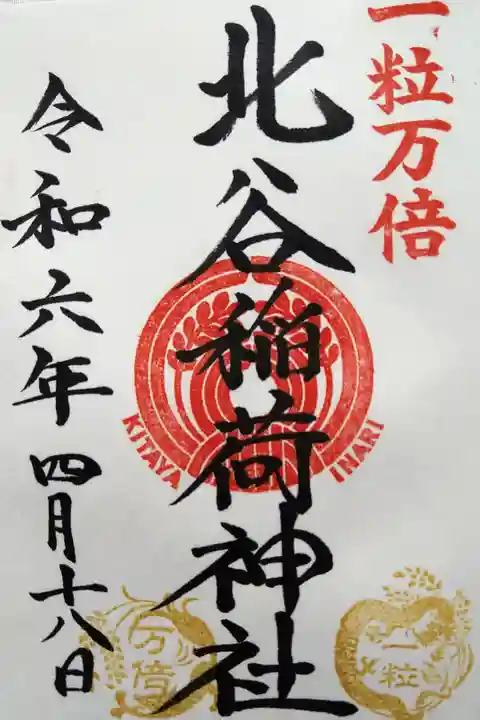 一粒万倍
北谷稲荷神社
KITAYA INARI
令和六年四月十八日
一粒
万倍